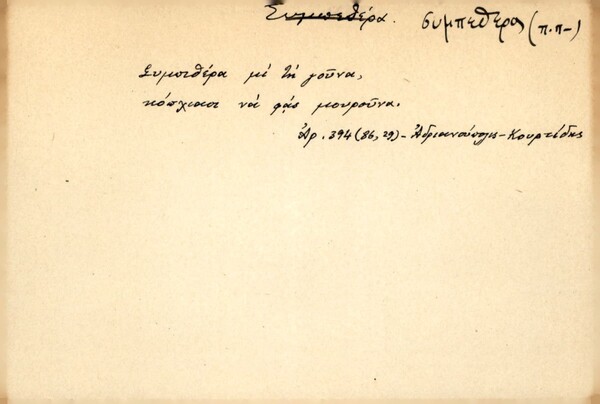 Συμπεθέρα. συμπεθέρα (π.π-)
Συμπιθέρα μὶ τὴ γοῦνα,
κόπχιασι νὰ φᾷς μουροῦνα.
Ἀρ. 394 (86, 29) - Ἀδριανούπολις - Κουρτίδης